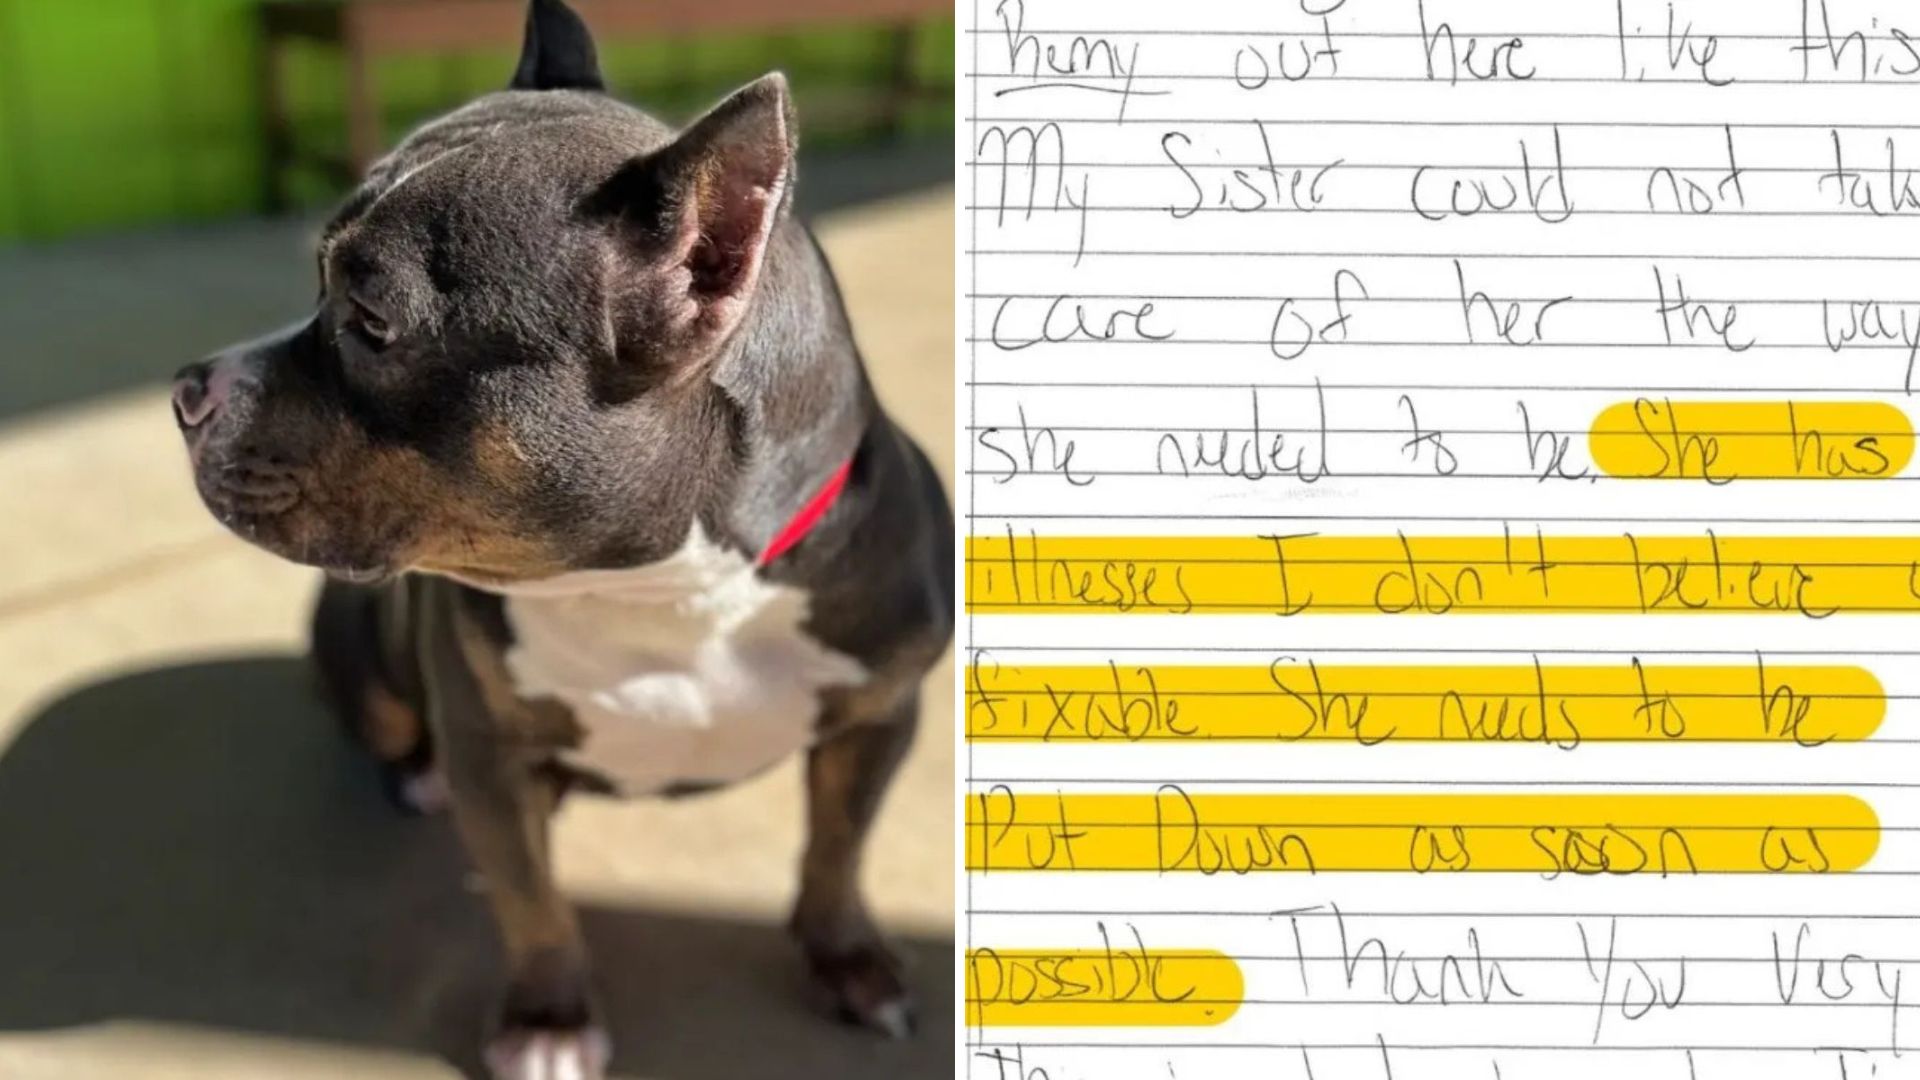 Remy out here like this
My Sister could not tak
care of her the way
she needed to be. She has
illnesses I don't believe
fixable. She needs to be
Put Down as soon as
possible. Thank You Very